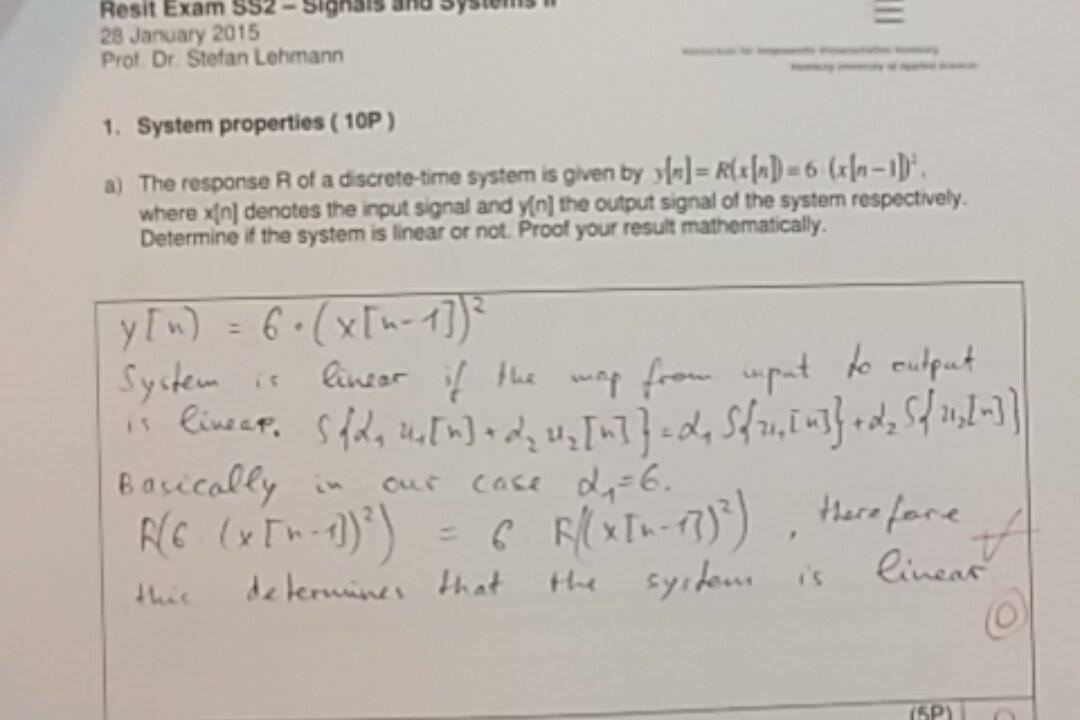 Resit Exam SS2 – Signals and Systems II
28 January 2015
Prof. Dr. Stefan Lehmann
Hochschule für Angewandte Wissenschaften Hamburg
Hamburg University of Applied Sciences
1. System properties ( 10P )
a) The response R of a discrete-time system is given by y[n] = R(x[n]) = 6·(x[n−1])²,
where x[n] denotes the input signal and y[n] the output signal of the system respectively.
Determine if the system is linear or not. Proof your result mathematically.
y[n) = 6·(x[n-1])²
System is linear if the map from input to output
is linear. S{α₁ u₁[n] + α₂ u₂[n]} = α₁ S{u₁[n]} + α₂ S{u₂[n]}
Basically in our case α₁=6.
R(6 (x[n-1])²) = 6 R((x[n-1])²), therefore
this determines that the system is linear
0
(5P)